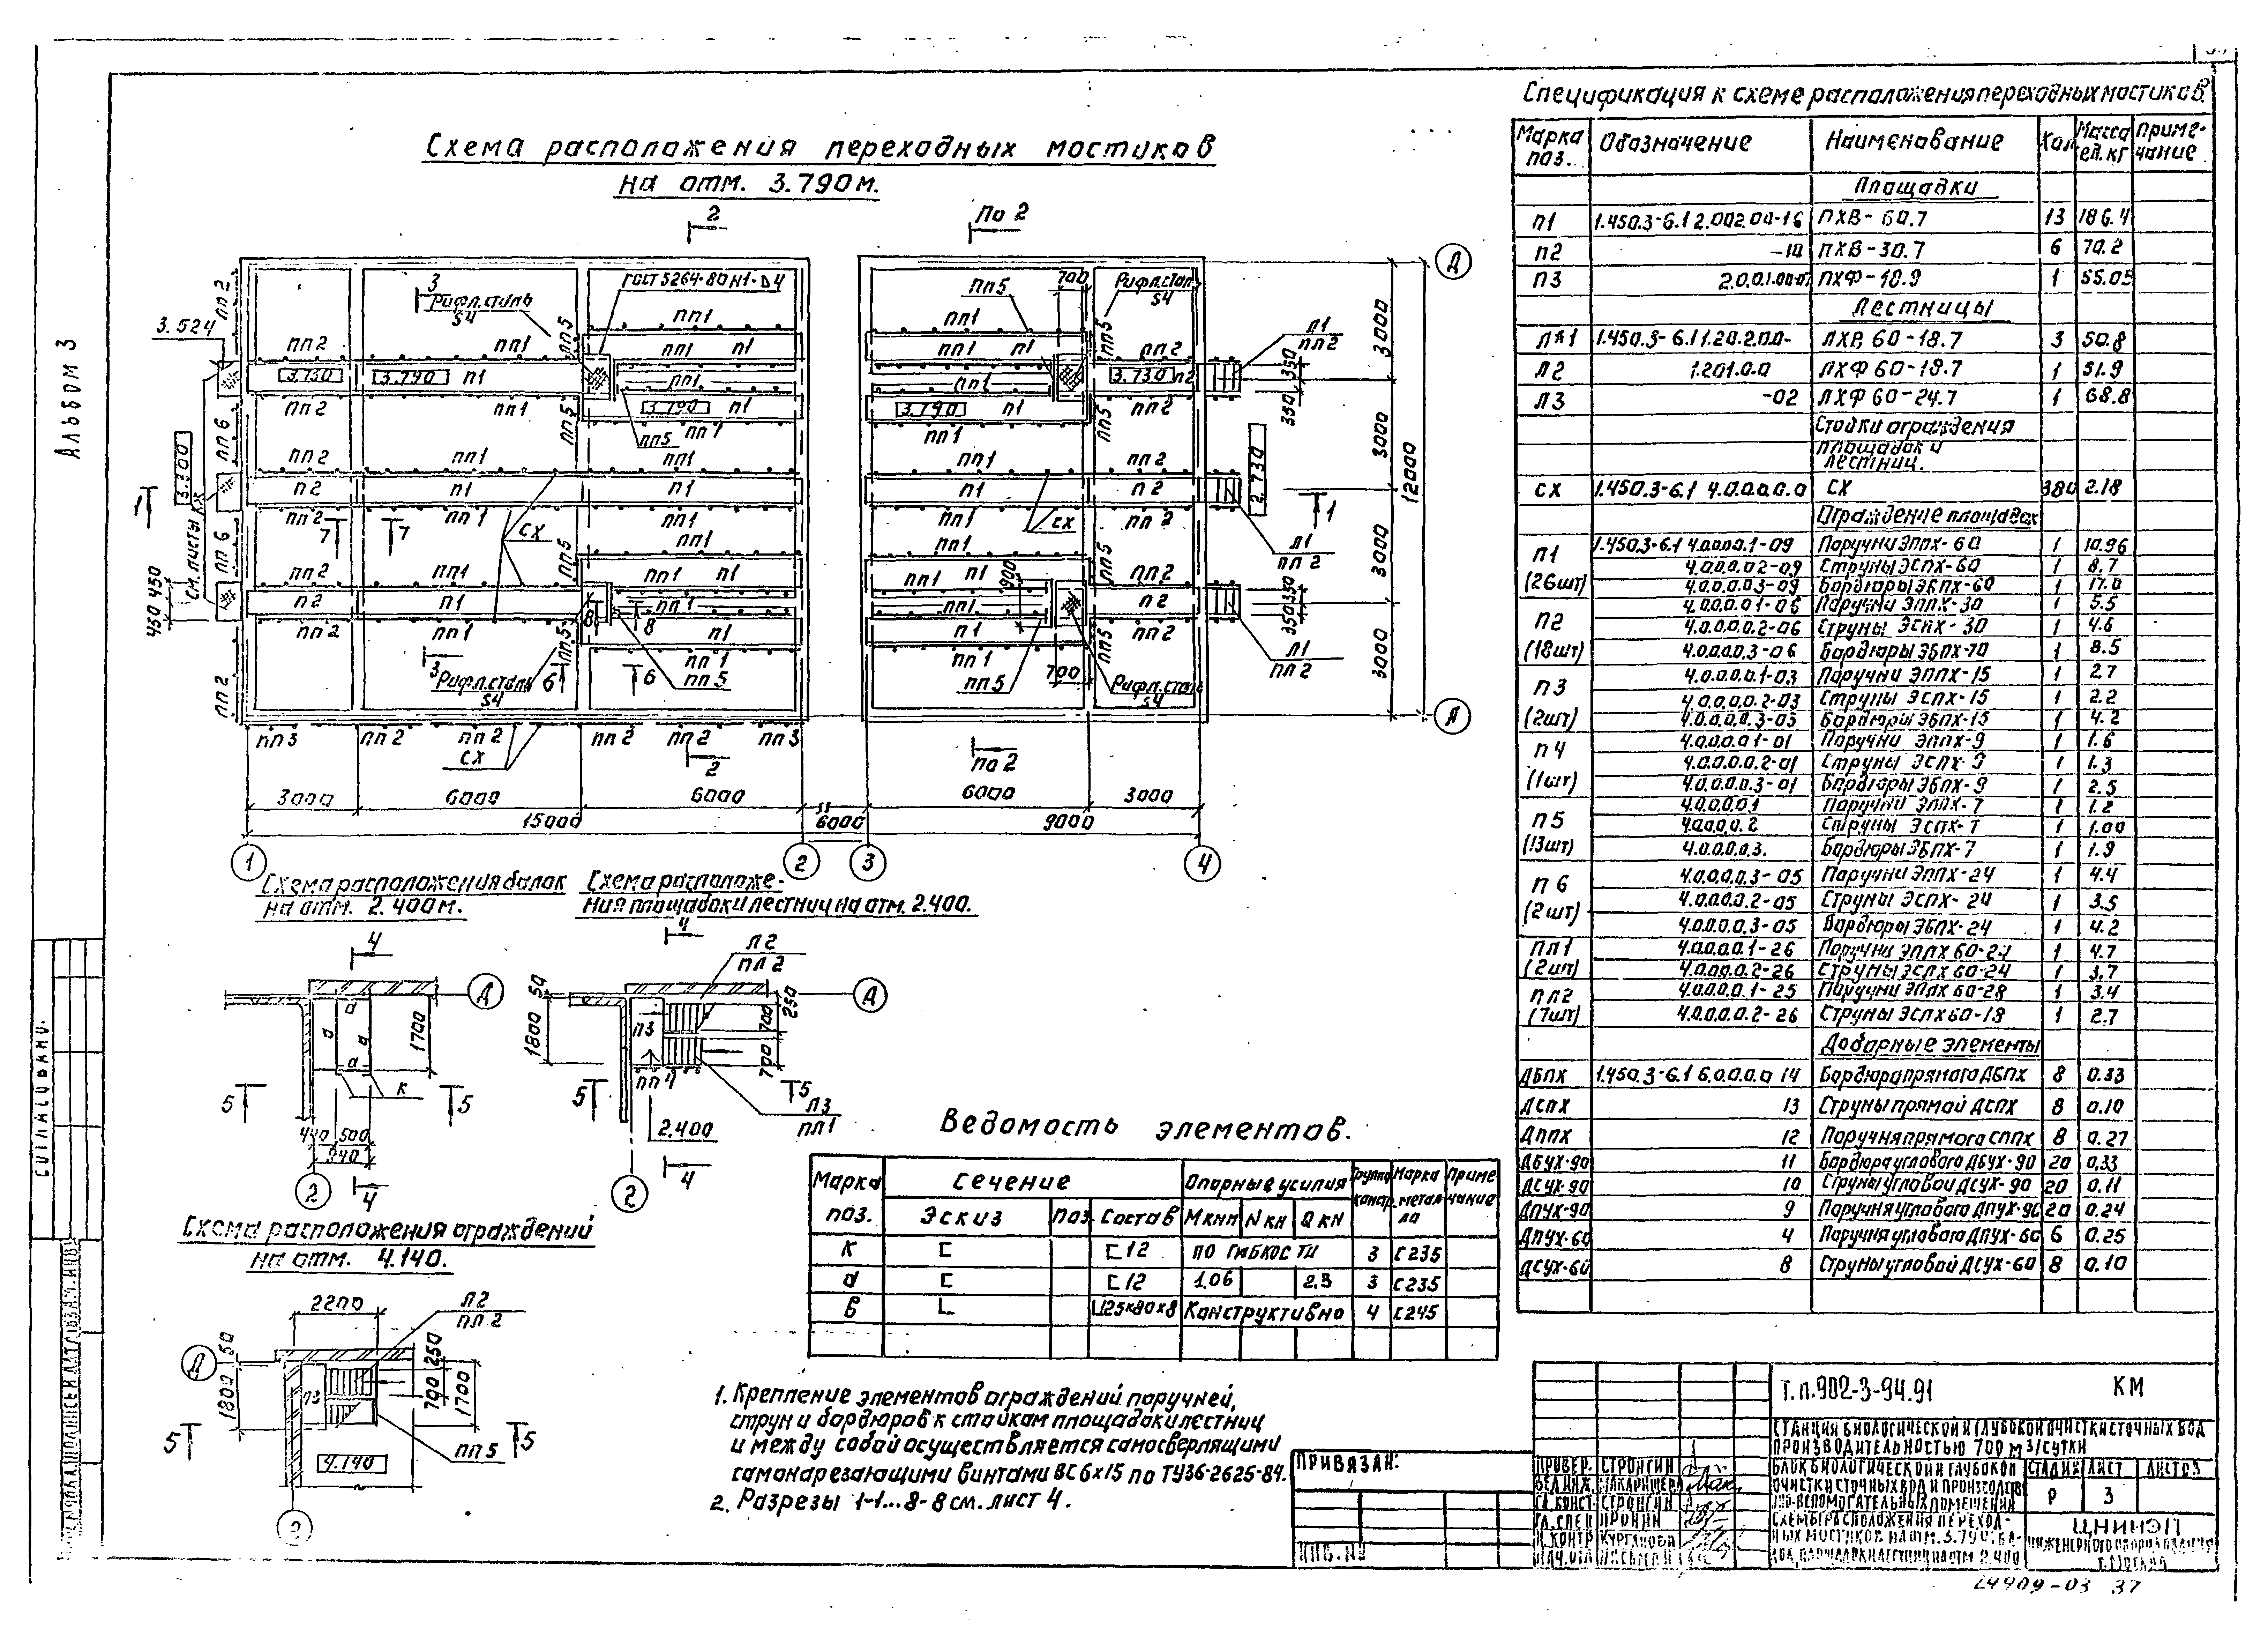 Альбом 3
Схема расположения переходных мостиков
на отм. 3.790м.
2
По 2
3
Рифл.сталь
S4
ГОСТ 5264-80 Н1-Δ4
ПП5
700
Рифл.стал
S4
Д
3.524
ПП2
ПП1
Л1
ПП2
3000
ПП2 ПП1 ПП1 П1 ПП1 П1 ПП2
3.730 3.790 П1 3.730 П2
350
ПП2 ПП1 3.790 П1 3.790 П1 ПП2
350
ПП5 ПП1 ПП1
3000
12000
ПП6
3.300
См. листы КЖ
ПП2 ПП1 ПП1 ПП1 ПП2
2.730
1
П2 П1 П1 П1 П2
1
ПП2 ПП1 ПП1 ПП1 ПП2
7 7
СХ
СХ
Л1
ПП2
3000
ПП6
ПП2 ПП1 ПП1 П1 ПП1 П1 ПП2
900
450 450
П2 П1 ПП1 ПП1 П2
350 350
ПП2 ПП1 8 8 П1 П1 ПП2
Л1
ПП2
3000
3
Рифл.сталь
S4
6 6
ПП1
ПП5
ПП1
ПП5
700
Рифл.сталь
S4
ПП2
А
ПП3 ПП2 ПП2 ПП2 ПП2 ПП3
СХ
2
По 2
3000 6000 6000 6000 3000
15000 6000 9000
1 2 3 4
Схема расположения балок
на отм. 2.400м.
4
Д
б
1700
К
5 5
440 500
940
2
4
Схема расположе-
ния площадок и лестниц на отм. 2.400.
4
Л2
ПЛ2
50
Д
250
1800
П3
700
700
ПП4
5 5
Л3
ПЛ1
2.400
2
4
Схема расположения ограждений
на отм. 4.140.
2200
Л2
ПЛ2
Д
50
1800
П3
250
700
1700
5 5
ПП5
4.140
Ведомость элементов.
Марка поз. Сечение Опорные усилия Группа констр. Марка метал ла Приме- чание
Эскиз поз. Состав М кнм N кн Q кн
К [ [12 по гибкости 3 С235
б [ [12 1.06 2.3 3 С235
в L L125х80х8 Конструктивно 4 С245
1. Крепление элементов ограждений поручней,
струн и бордюров к стойкам площадок и лестниц
и между собой осуществляется самосверлящими
самонарезающими винтами ВС 6х15 по ТУ36-2625-84.
2. Разрезы 1-1...8-8 см. лист 4.
Спецификация к схеме расположения переходных мостиков.
Марка поз. Обозначение Наименование Кол Масса ед. кг Приме- чание
Площадки
П1 1.450.3-6.1 2.002.00-16 ПХВ-60.7 13 186.4
П2 -10 ПХВ-30.7 6 70.2
П3 2.0.0.1.00-07 ПХФ-18.9 1 55.05
Лестницы
Л1 1.450.3-6.1 1.20.2.00- ЛХВ 60-18.7 3 50.8
Л2 1.201.0.0 ЛХФ 60-18.7 1 51.9
Л3 -02 ЛХФ 60-24.7 1 68.8
Стойки ограждения
площадок и
лестниц.
СХ 1.450.3-6.1 4.0.0.0.0 СХ 380 2.18
Ограждение площадок
П1 (26шт) 1.450.3-6.1 4.0.0.0.1-09 Поручни ЭППХ-60 1 10.96
4.0.0.0.02-09 Струны ЭСПХ-60 1 8.7
4.0.0.0.03-09 Бордюры ЭБПХ-60 1 17.0
П2 (18шт) 4.0.0.0.01-06 Поручни ЭППХ-30 1 5.5
4.0.0.0.0.2-06 Струны ЭСПХ-30 1 4.6
4.0.0.0.0.3-06 Бордюры ЭБПХ-70 1 8.5
П3 (2шт) 4.0.0.0.0.1-03 Поручни ЭППХ-15 1 2.7
4.0.0.0.0.2-03 Струны ЭСПХ-15 1 2.2
4.0.0.0.0.3-03 Бордюры ЭБПХ-15 1 4.2
П4 (1шт) 4.0.0.0.01-01 Поручни ЭППХ-9 1 1.6
4.0.0.0.0.2-01 Струны ЭСПХ-9 1 1.3
4.0.0.0.0.3-01 Бордюры ЭБПХ-9 1 2.5
П5 (13шт) 4.0.0.0.0.1 Поручни ЭППХ-7 1 1.2
4.0.0.0.0.2 Струны ЭСПХ-7 1 1.00
4.0.0.0.0.3. Бордюры ЭБПХ-7 1 1.9
П6 (2шт) 4.0.0.0.0.3-05 Поручни ЭППХ-24 1 4.4
4.0.0.0.0.2-05 Струны ЭСПХ-24 1 3.5
4.0.0.0.0.3-05 Бордюры ЭБПХ-24 1 4.2
ПЛ1 (2шт) 4.0.0.0.0.1-26 Поручни ЭЛПХ 60-24 1 4.7
4.0.0.0.0.2-26 Струны ЭСЛХ 60-24 1 3.7
ПЛ2 (7шт) 4.0.0.0.0.1-25 Поручни ЭПЛХ 60-28 1 3.4
4.0.0.0.0.2-26 Струны ЭСЛХ 60-18 1 2.7
Доборные элементы
ДБПХ 1.450.3-6.1 6.0.0.0.0 14 Бордюра прямого ДБПХ 8 0.33
ДСПХ 13 Струны прямой ДСПХ 8 0.10
ДППХ 12 Поручня прямого СППХ 8 0.27
ДБУХ-90 11 Бордюра углового ДБУХ-90 20 0.33
ДСУХ-90 10 Струны угловой ДСУХ-90 20 0.11
ДПУХ-90 9 Поручня углового ДПУХ-90 20 0.24
ДПУХ-60 4 Поручня углового ДПУХ-60 6 0.25
ДСУХ-60 8 Струны угловой ДСУХ-60 8 0.10
Т.п. 902-3-94.91 КМ
СТАНЦИЯ БИОЛОГИЧЕСКОЙ И ГЛУБОКОЙ ОЧИСТКИ СТОЧНЫХ ВОД
ПРОИЗВОДИТЕЛЬНОСТЬЮ 700 М3/СУТКИ
БЛОК БИОЛОГИЧЕСКОЙ И ГЛУБОКОЙ
ОЧИСТКИ СТОЧНЫХ ВОД И ПРОИЗВОДСТВ
НО-ВСПОМОГАТЕЛЬНЫХ ПОМЕЩЕНИЙ
СТАДИЯ ЛИСТ ЛИСТОВ
Р 3
СХЕМЫ РАСПОЛОЖЕНИЯ ПЕРЕХОД-
НЫХ МОСТИКОВ НА ОТМ. 3.790, БА-
ЛОК, ПЛОЩАДОК И ЛЕСТНИЦ НА ОТМ 2.400
ЦНИИЭП
ИНЖЕНЕРНОГО ОБОРУДОВАНИЯ
Г. МОСКВА
ПРОВЕР. СТРОНГИН
ВЕД.ИНЖ. МАКАРИШЕВА
ГЛ.КОНСТ СТРОНГИН
ГЛ.СПЕЦ ПРОНИН
Н.КОНТР КУРГАНОВА
НАЧ.ОТД
ПРИВЯЗАН:
ИНВ. №
СОГЛАСОВАНО:
24909-03 37